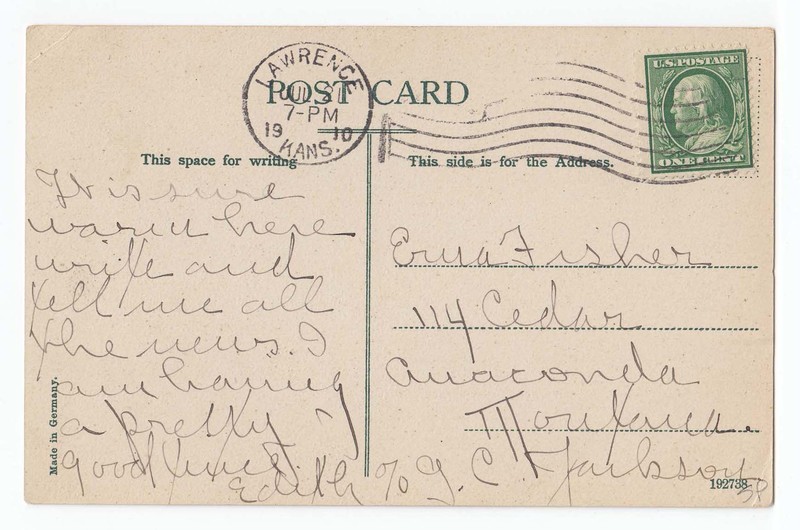 LAWRENCE
JUL 21
7-PM
1910
KANS.
POST CARD
U.S. POSTAGE
ONE CENT
This space for writing
This side is for the Address.
It is sure
warm here
write and
tell me all
the news. I
am having
a pretty
good time.
Edith % J. C. Jackson
Erma Fisher
114 Cedar
Anaconda
Montana.
Made in Germany.
192738